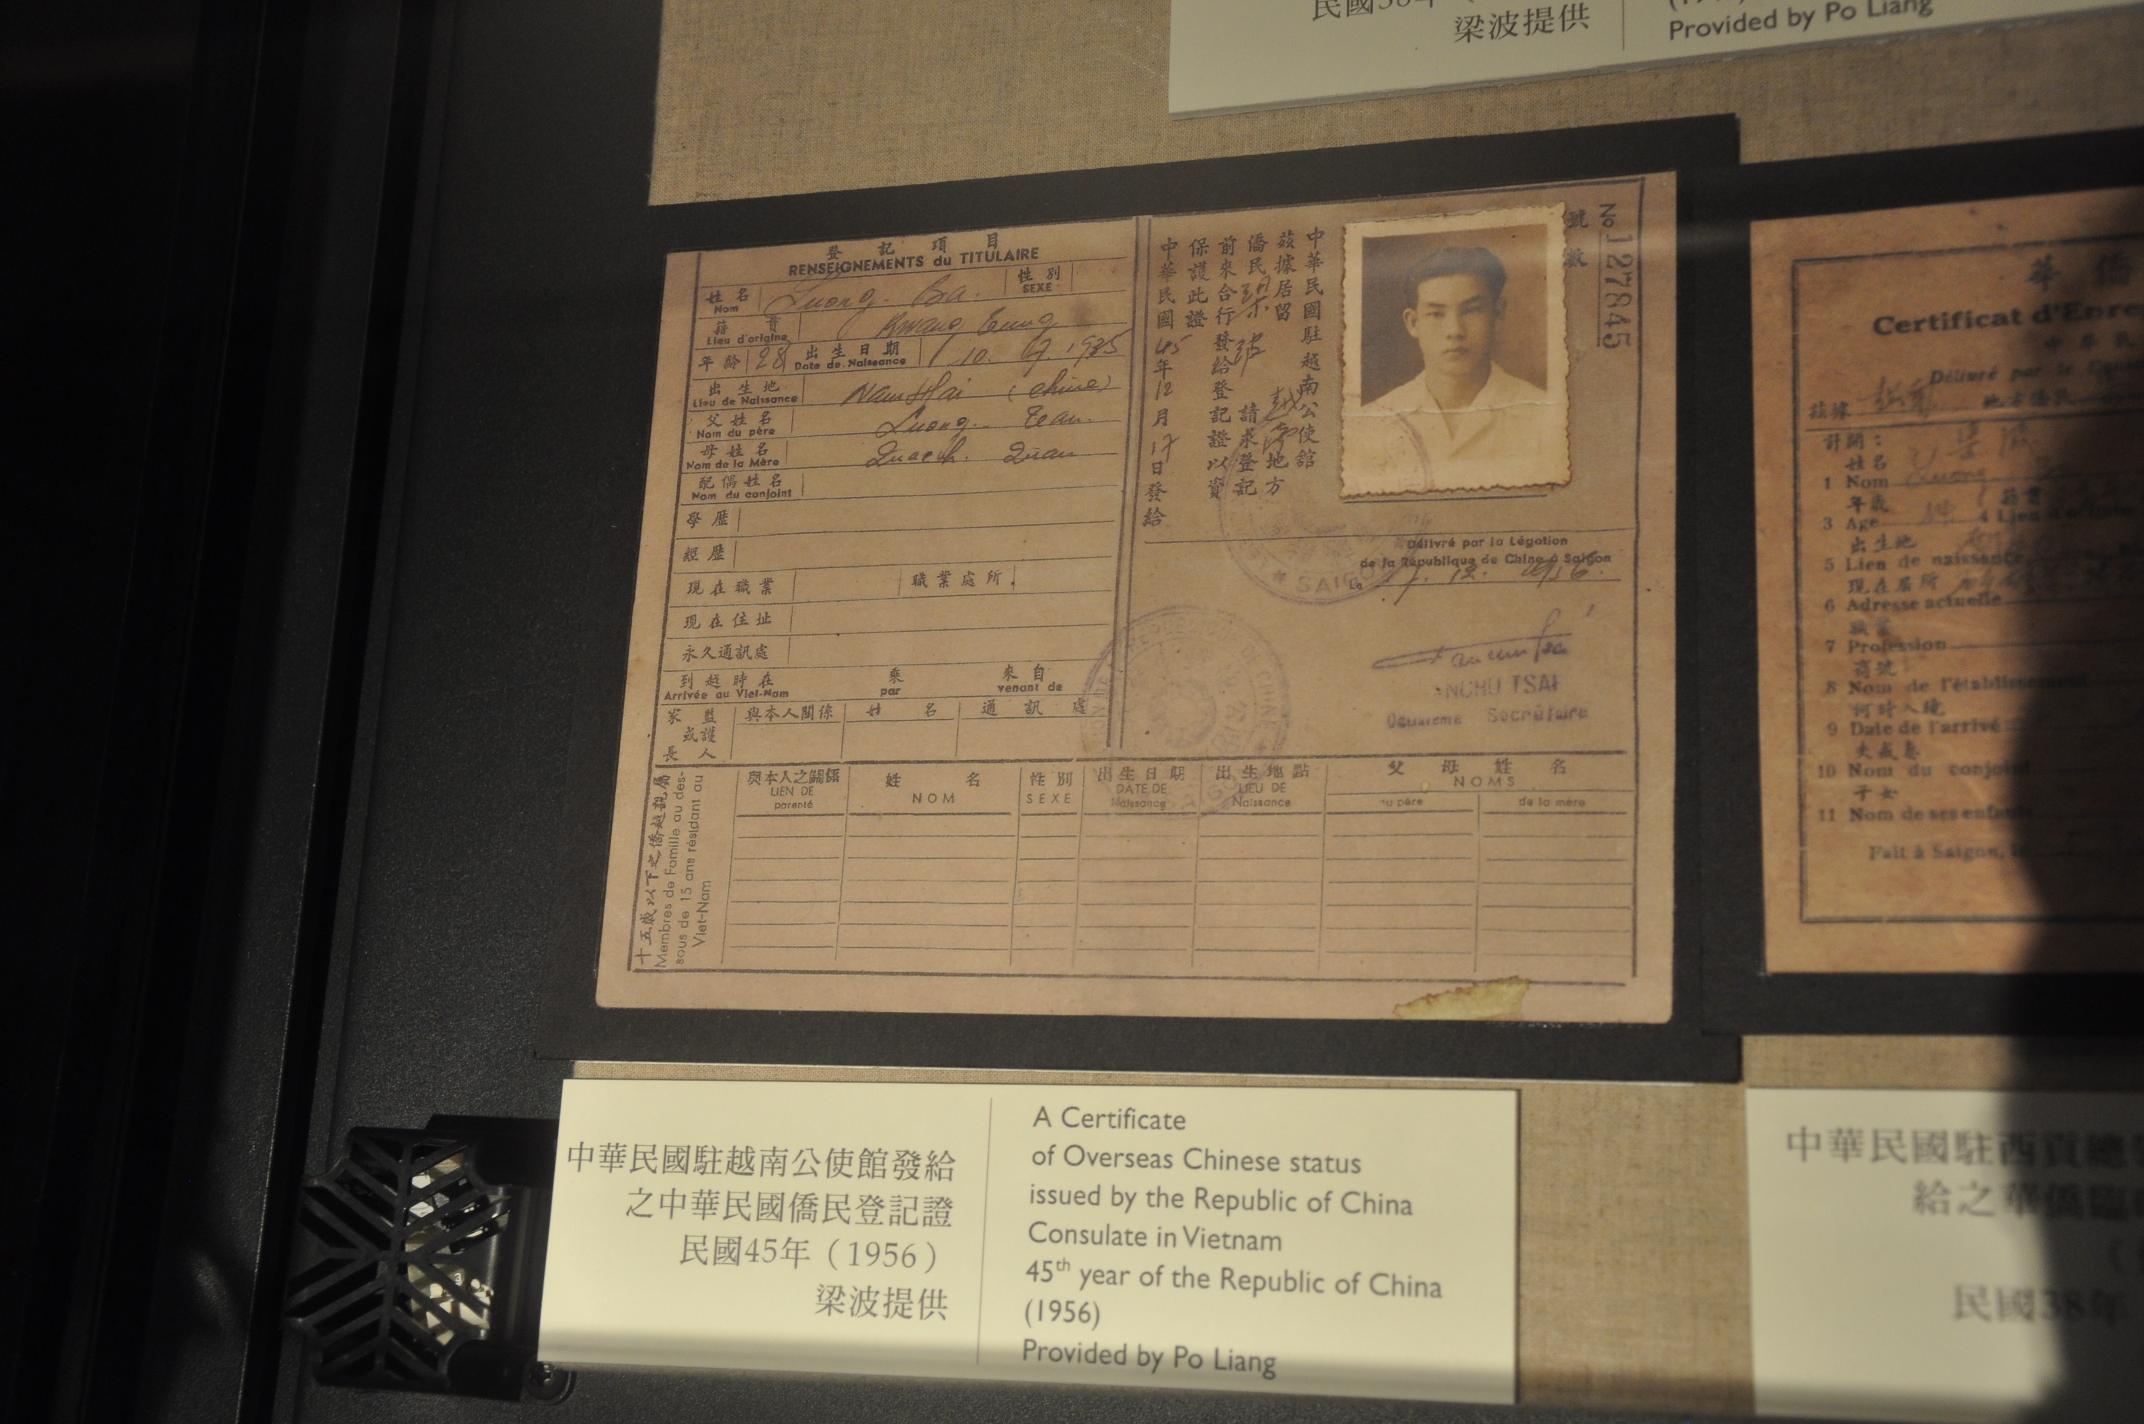 梁波提供
Provided by Po Liang
登記項目
RENSEIGNEMENTS du TITULAIRE
姓名 Nom Luong Ba.
性別 SEXE
籍貫 Lieu d'origine Kwang Tung
年齡 28 出生日期 Date de Naissance
出生地 Lieu de Naissance Nam Hai (Chine)
父姓名 Nom du père Luong
母姓名 Nom de la Mère Quach
配偶姓名 Nom du conjoint
學歷
經歷
現在職業 職業處所
現在住址
永久通訊處
到越時在 乘 來自
Arrivée au Viet-Nam par venant de
家長 或 監護人 與本人關係 姓名 通訊處
十五歲以下之僑越親屬
Membres de Famille au des-
sous de 15 ans résidant au
Viet-Nam
與本人之關係 姓名 性別 出生日期 出生地點 父母姓名
LIEN DE parenté NOM SEXE DATE DE Naissance LIEU DE Naissance NOMS
du père de la mère
號數
No 127845
中華民國駐越南公使館
茲據居留越南地方
僑民梁波請求登記
前來合行發給登記證以資
保護此證
中華民國45年12月17日發給
Délivré par la Légation
de la République de Chine à Saigon
Le 17. 12. 1956.
SAIGON
Deuxième Secrétaire
中華民國駐越南公使館發給
之中華民國僑民登記證
民國45年（1956）
梁波提供
A Certificate
of Overseas Chinese status
issued by the Republic of China
Consulate in Vietnam
45th year of the Republic of China
(1956)
Provided by Po Liang
華僑
Certificat d'Enre
Délivré par le
茲據
地方僑民
計開：
姓名
1 Nom
年歲
3 Age 4 Lieu d'origine
出生地
5 Lieu de naissance
現在居所
6 Adresse actuelle
職業
7 Profession
商號
8 Nom de l'établissement
何時入境
9 Date de l'arrivé
夫或妻
10 Nom du conjoint
子女
11 Nom de ses enfants
Fait à Saigon, le
中華民國駐西貢總
給之華僑臨
民國38年